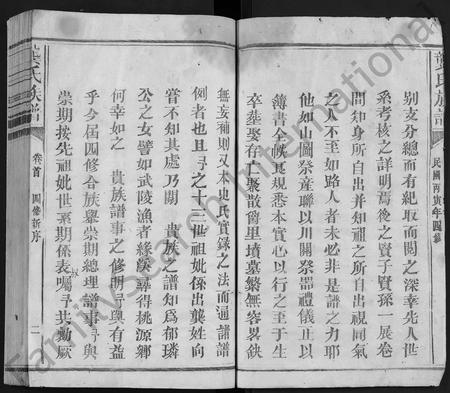 龔氏族譜
民國丙寅年四修
別支分總而有紀取而閱之深幸先人世
系考核之詳明焉後之賢子賢孫一展卷
間知身所自出并知祖之所自出視同氣
之人不至如路人者未必非是譜之力耶
他如山圖祭產聯以川開祭器禮儀正以
簿書全帙其規番本實心以行之至于生
卒葬娶存乎聚散爵里墳墓槩無容畧缺
無妄補則又本史氏實錄之法而通譜譜
例者也且寻之十三世祖妣係出龔姓向
嘗不知其處乃閱 貴族之譜知為郁璘
公之女譬如武陵漁者緣溪尋得桃源鄉
何幸如之 貴族譜事之修明寻與有益
乎今屆四修合族舉崇期總理譜事寻與
崇期按先祖妣世系期係表叔囑寻共勷厥
龔氏族譜
卷首
四修新序
二
FamilySearch International